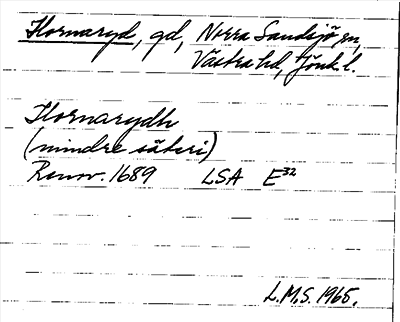 Hornaryd, gd, Norra Sandsjö sn,
Västra hd, Jönk. l.
Hornarydh
(mindre säteri)
Renov. 1689 LSA E³²
L.M.S. 1965.